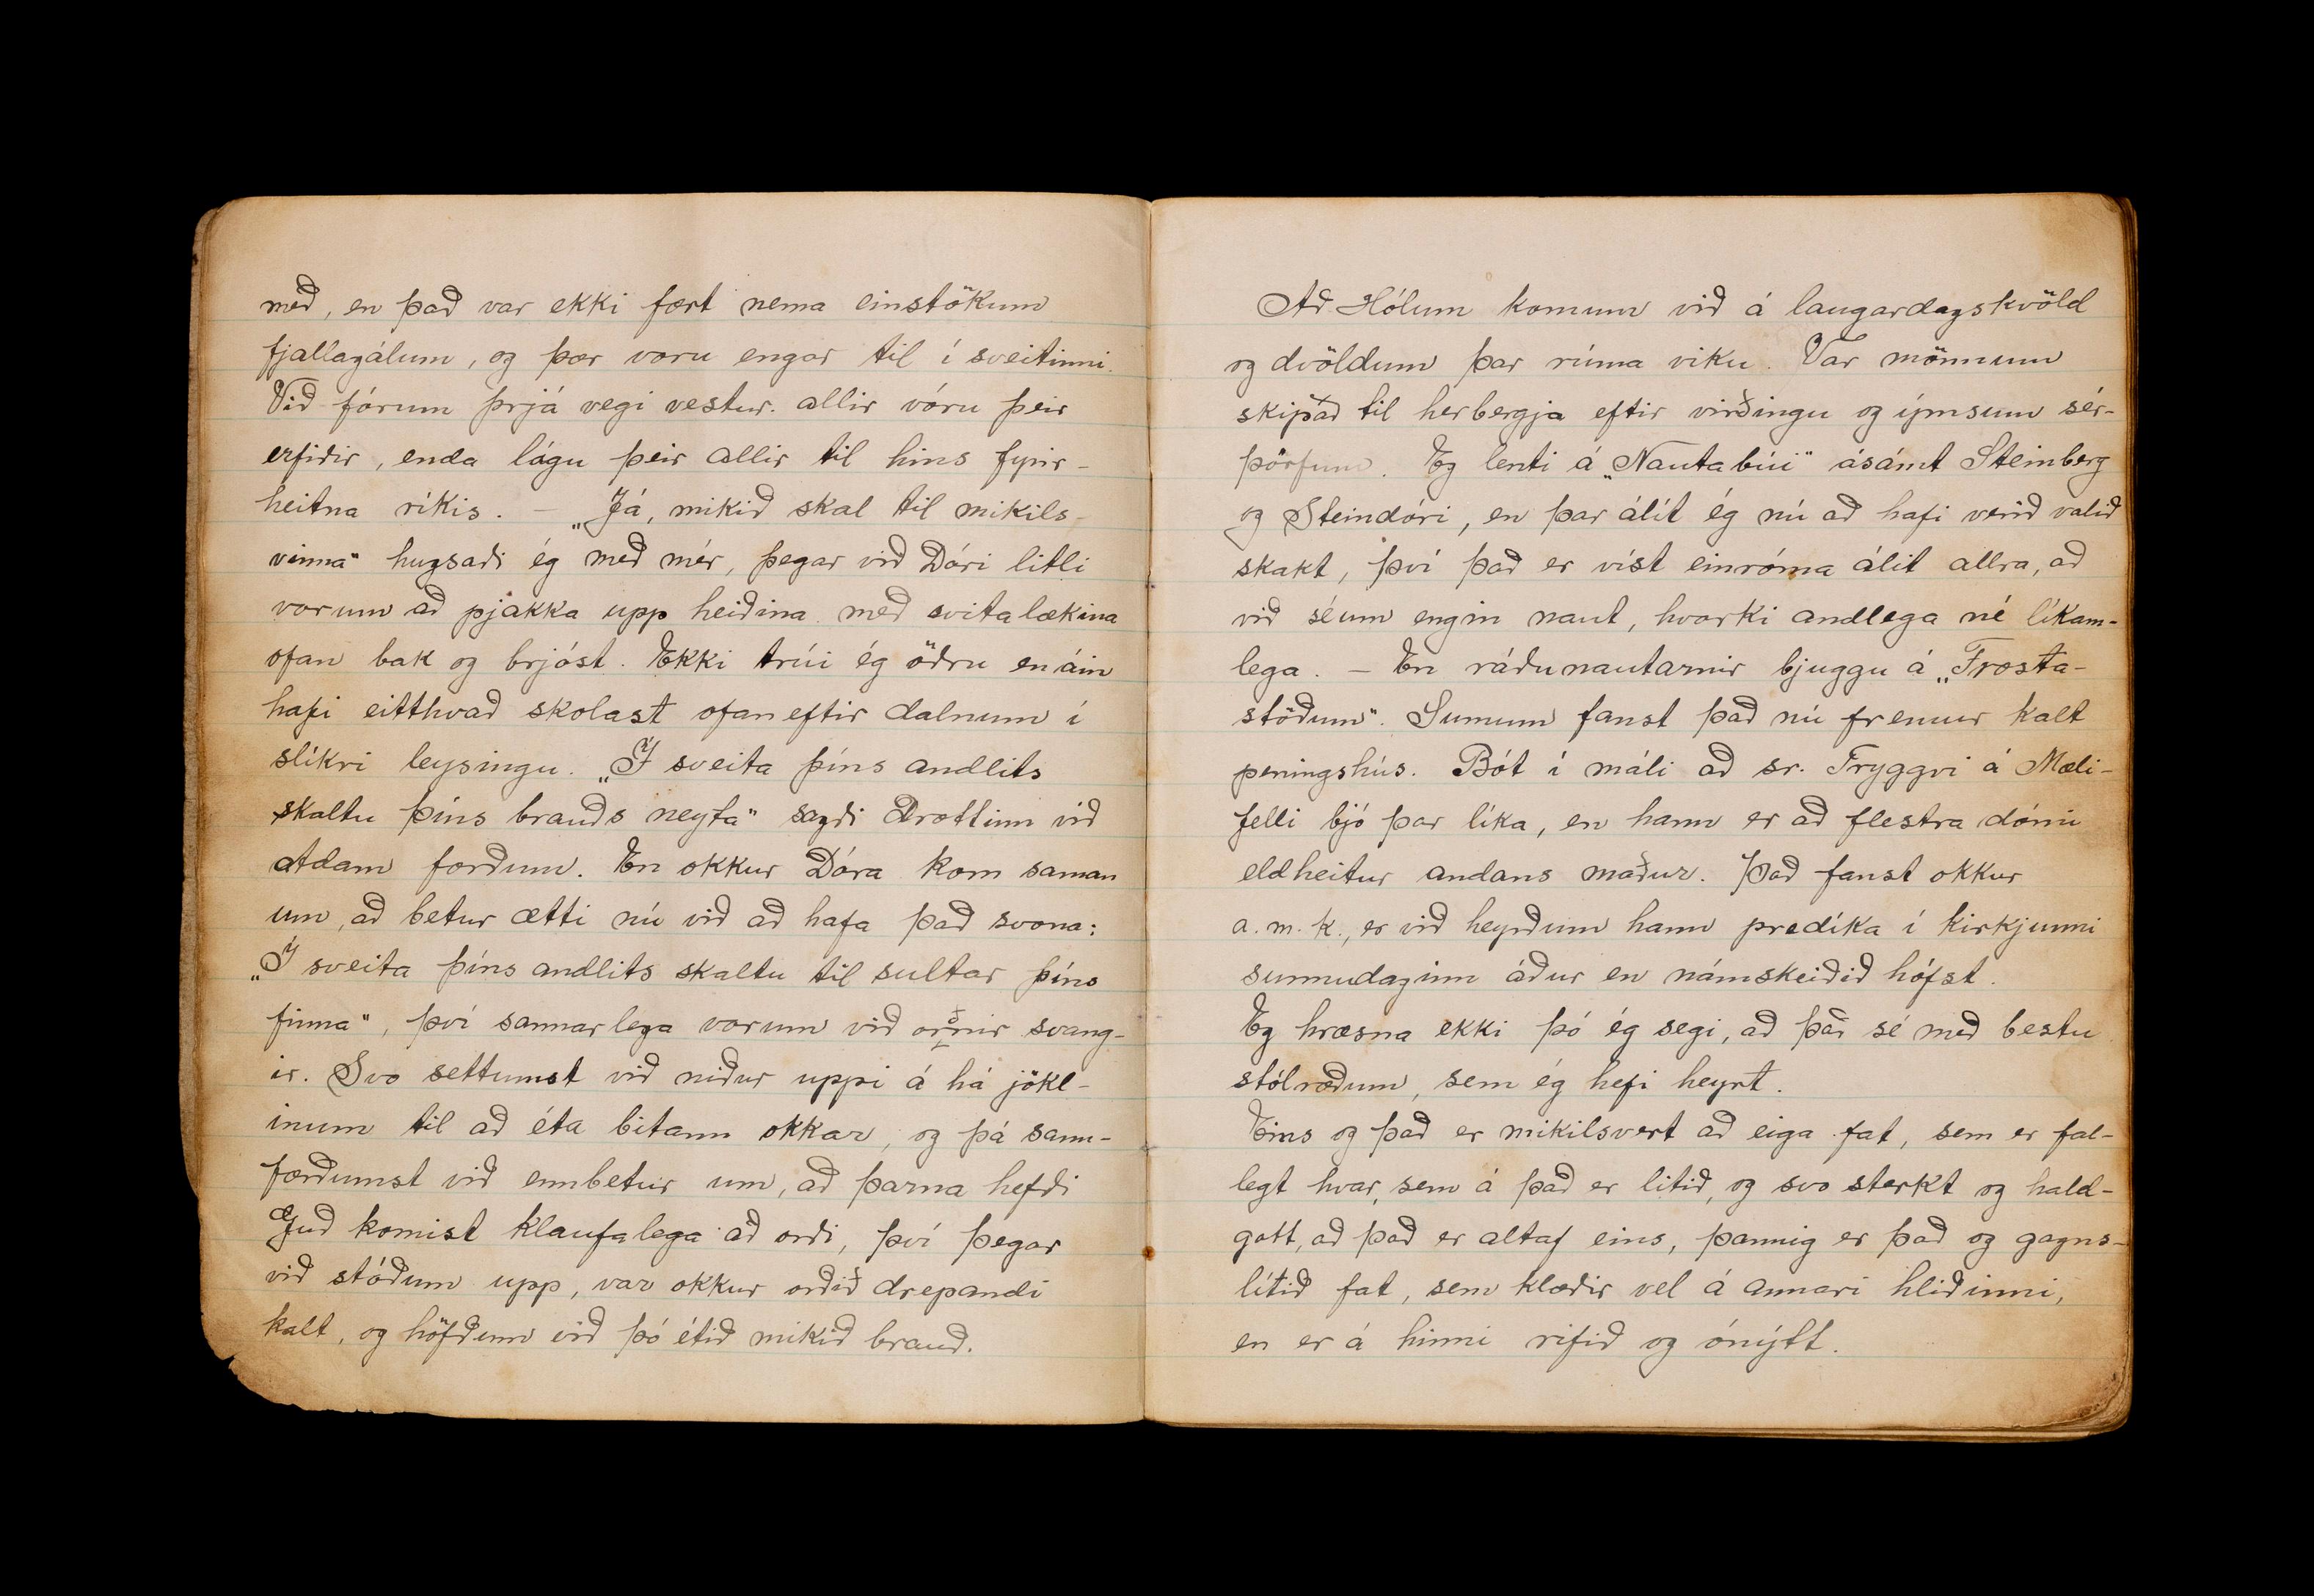 með, en það var ekki fært nema einstökum
fjallagálum, og þær voru engar til í sveitinni.
Við fórum þrjá vegi vestur. allir vóru þeir
erfiðir, enda lágu þeir allir til hins fyrir-
heitna ríkis. – „Já, mikið skal til mikils
vinna" hugsaði ég með mér, þegar við Dóri litli
vorum að pjakka upp heiðina með svitalækina
ofan bak og brjóst. Ekki trúi ég öðru en áin
hafi eitthvað skolast ofan eftir dalnum í
slíkri leysingu. „Í sveita þíns andlits
skaltu þíns brauðs neyta" sagði drottinn við
Adam forðum. En okkur Dóra kom saman
um, að betur ætti nú við að hafa það svona:
„Í sveita þíns andlits skaltu til sultar þíns
finna", því sannarlega vorum við orðnir svang-
ir. Svo settumst við niður uppi á há jökl-
inum til að éta bitann okkar, og þá sann-
færðumst við ennbetur um, að þarna hefði
Guð komist klaufalega að orði, því þegar
við stóðum upp, var okkur orðið drepandi
kalt, og höfðum við þó étið mikið brauð.
Að Hólum komum við á laugardagskvöld
og dvöldum þar rúma viku. Var mönnum
skipað til herbergja eftir virðingu og ýmsum sér-
þörfum. Eg lenti á „Nautabúi" ásámt Steinberg
og Steindóri, en þar álít ég nú að hafi verið valið
skakt, því það er víst einróma álit allra, að
við séum engin naut, hvorki andlega né líkam-
lega. – En ráðunautarnir bjuggu á „Frosta-
stöðum". Sumum fanst það nú fremur kalt
peningshús. Bót í máli að sr. Tryggvi á Mæli-
felli bjó þar líka, en hann er að flestra dómi
eldheitur andans maður. Það fanst okkur
a.m.k., er við heyrðum hann predíka í kirkjunni
sunnudaginn áður en námskeiðið hófst.
Eg hræsna ekki þó ég segi, að það sé með bestu
stólræðum, sem ég hefi heyrt.
Eins og það er mikilsvert að eiga fat, sem er fal-
legt hvar, sem á það er litið, og svo sterkt og hald-
gott, að það er altaf eins, þannig er það og gagns-
lítið fat, sem klæðir vel á annari hliðinni,
en er á hinni rifið og ónýtt.